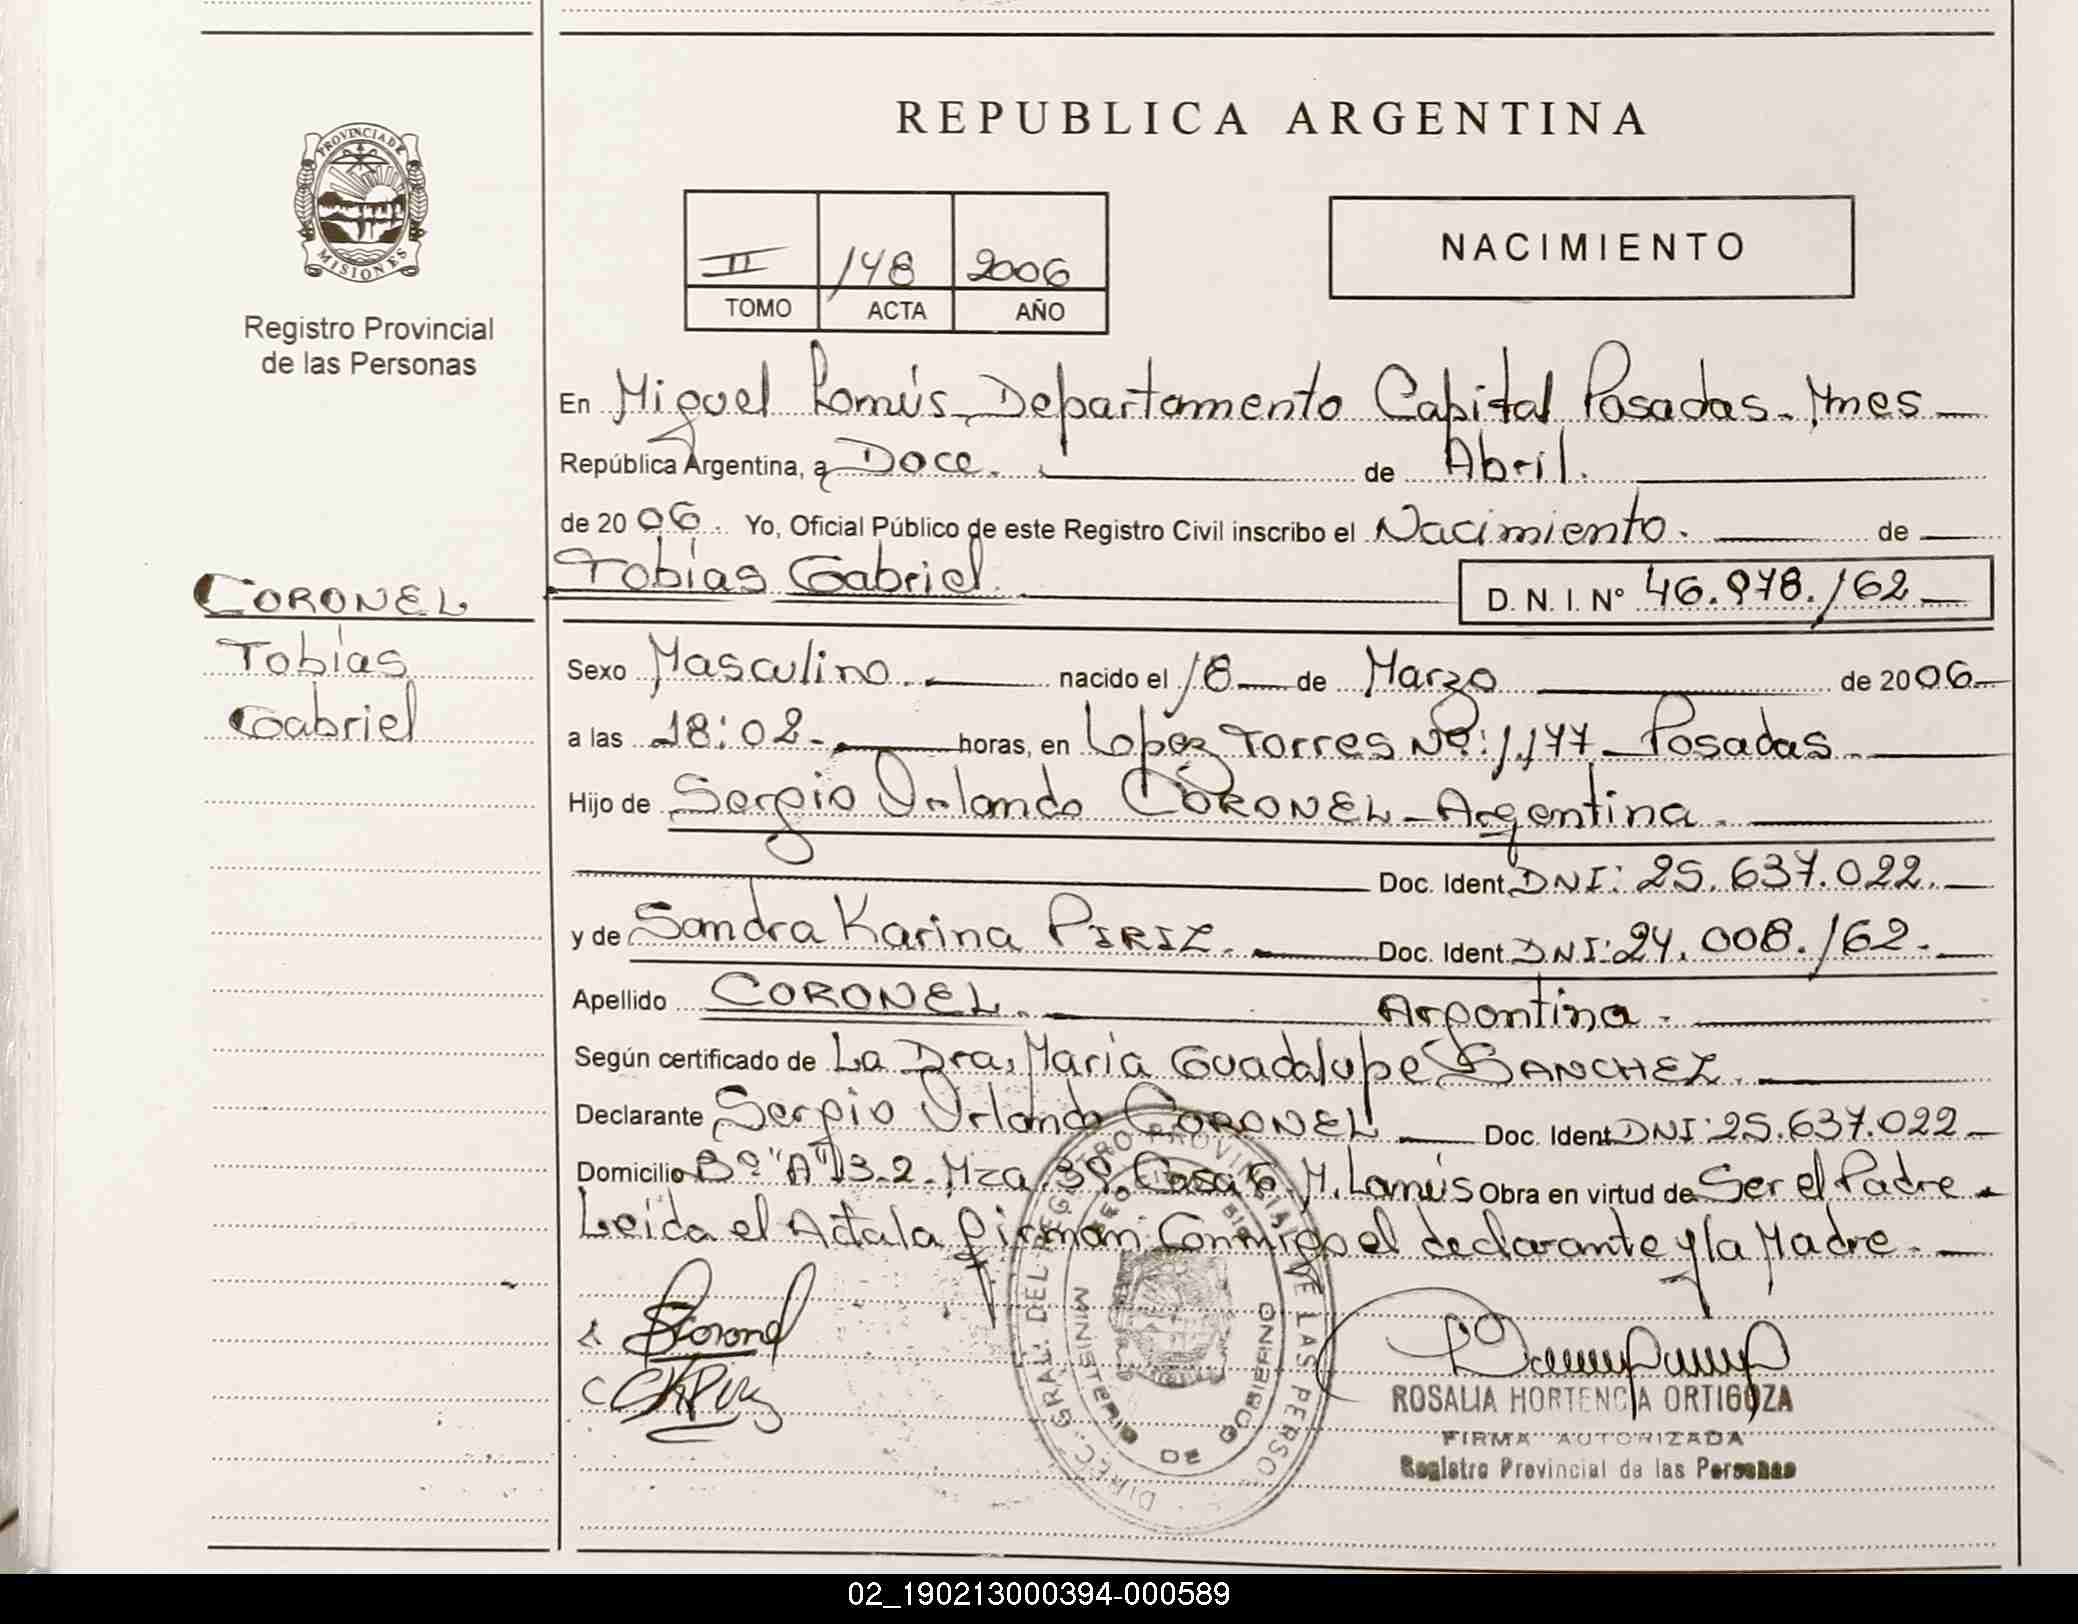 REPUBLICA ARGENTINA
PROVINCIA DE MISIONES
Registro Provincial
de las Personas
II 148 2006
TOMO ACTA AÑO
NACIMIENTO
En Miguel Lanús, Departamento Capital Posadas - Mnes
República Argentina, a Doce. de Abril.
de 2006. Yo, Oficial Público de este Registro Civil inscribo el Nacimiento. de
Tobías Gabriel. D. N. I. Nº 46.978.162
CORONEL
Tobías
Gabriel
Sexo Masculino. nacido el 18 de Marzo de 2006
a las 18:02- horas, en Lopez Torres Nº: 1.177 - Posadas.
Hijo de Sergio Orlando CORONEL - Argentina.
Doc. Ident. DNI: 25.637.022.
y de Sandra Karina PIRIZ. Doc. Ident. DNI: 24.008.162.
Apellido CORONEL. Argentina.
Según certificado de La Dra. María Guadalupe SANCHEZ.
Declarante Sergio Orlando CORONEL Doc. Ident. DNI: 25.637.022
Domicilio Bº "A" 3-2- Mza. 39. Casa 6. M. Lanús Obra en virtud de Ser el Padre.
Leída el Acta la firman Conmigo el declarante y la Madre.
DIREC. GRAL. DEL REGISTRO PROVINCIAL DE LAS PERSO
MINISTERIO DE GOBIERNO
ROSALIA HORTENCIA ORTIGOZA
FIRMA AUTORIZADA
Registro Provincial de las Personas
02_190213000394-000589